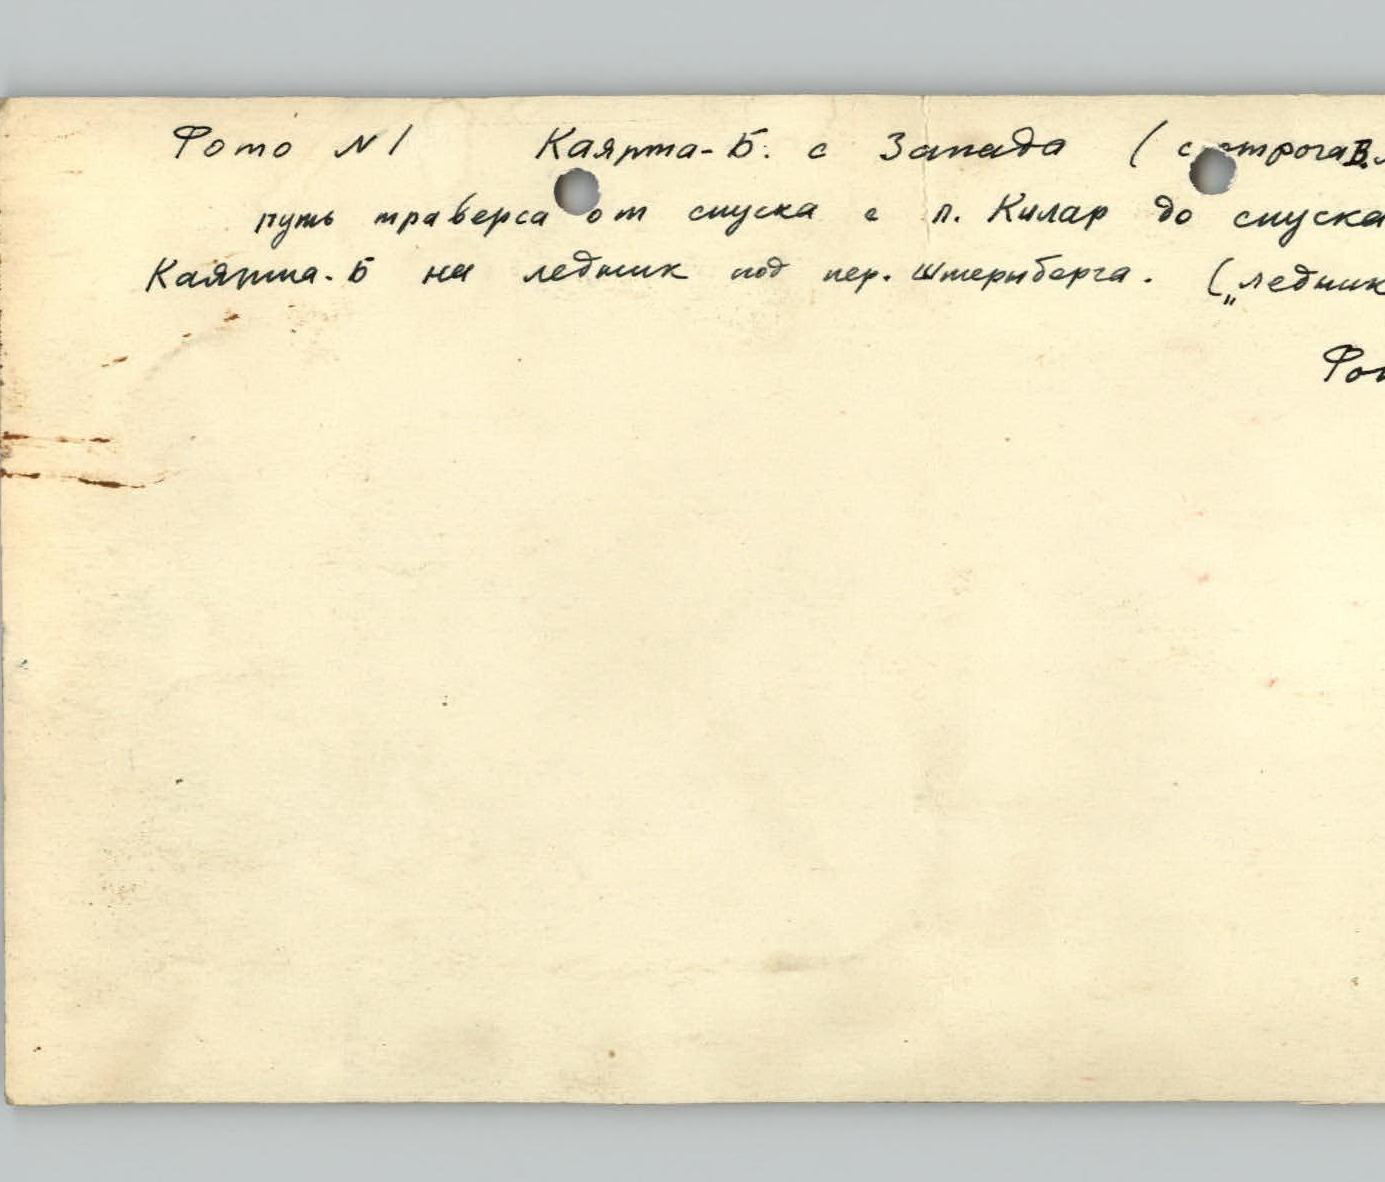 Фото N 1 Каярта-Б. с Запада ( с отрога В.
путь траверса от спуска с п. Килар до спуска
Каярта-Б на ледник под пер. Штернберга. („ледник
Фот